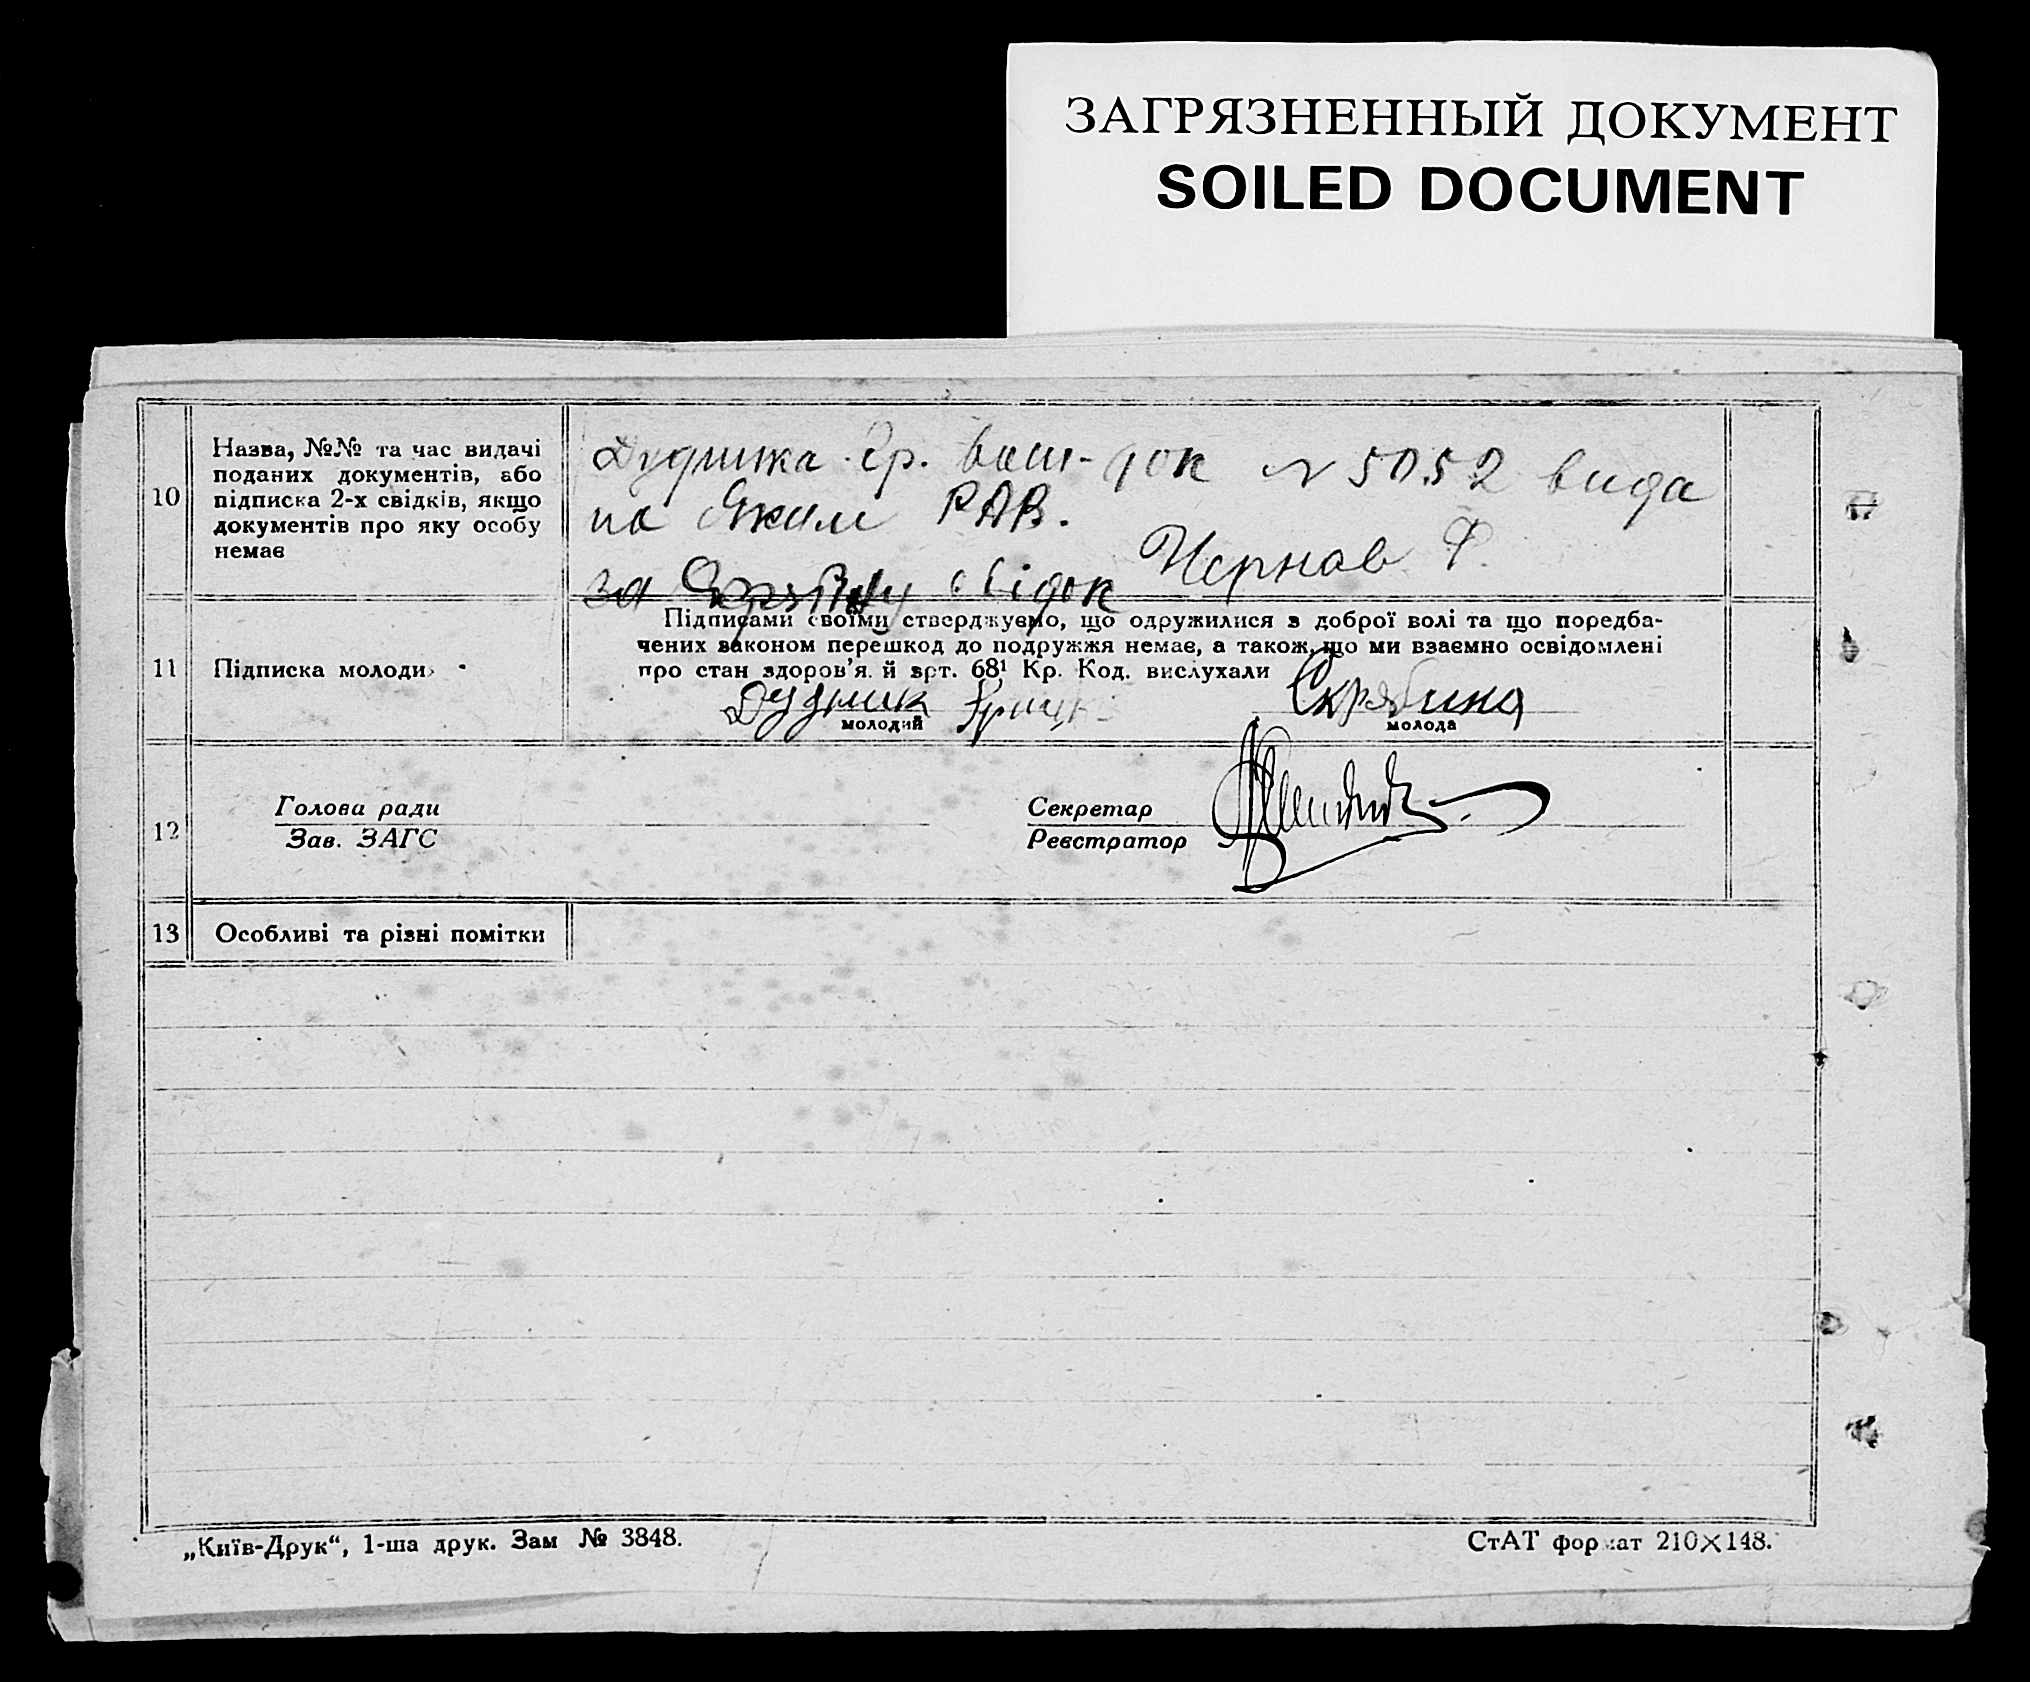 ЗАГРЯЗНЕННЫЙ ДОКУМЕНТ
SOILED DOCUMENT
10
Назва, №№ та час видачі
поданих документів, або
підписка 2-х свідків, якщо
документів про яку особу
немає
Дудника гр. ваш-док № 5052 вида
на РАВ.
Чернов Ф.
за свідок
11
Підписка молоди
Підписами своїми стверджуємо, що одружилися з доброї волі та що поредба-
чених законом перешкод до подружжя немає, а також, що ми взаємно освідомлені
про стан здоров'я. й арт. 68¹ Кр. Код. вислухали
Дудник Гриць Скрябина
молодий молода
12
Голова ради
Зав. ЗАГС
Секретар
Реєстратор
13
Особливі та різні помітки
„Київ-Друк“, 1-ша друк. Зам № 3848.
СтАТ формат 210×148.